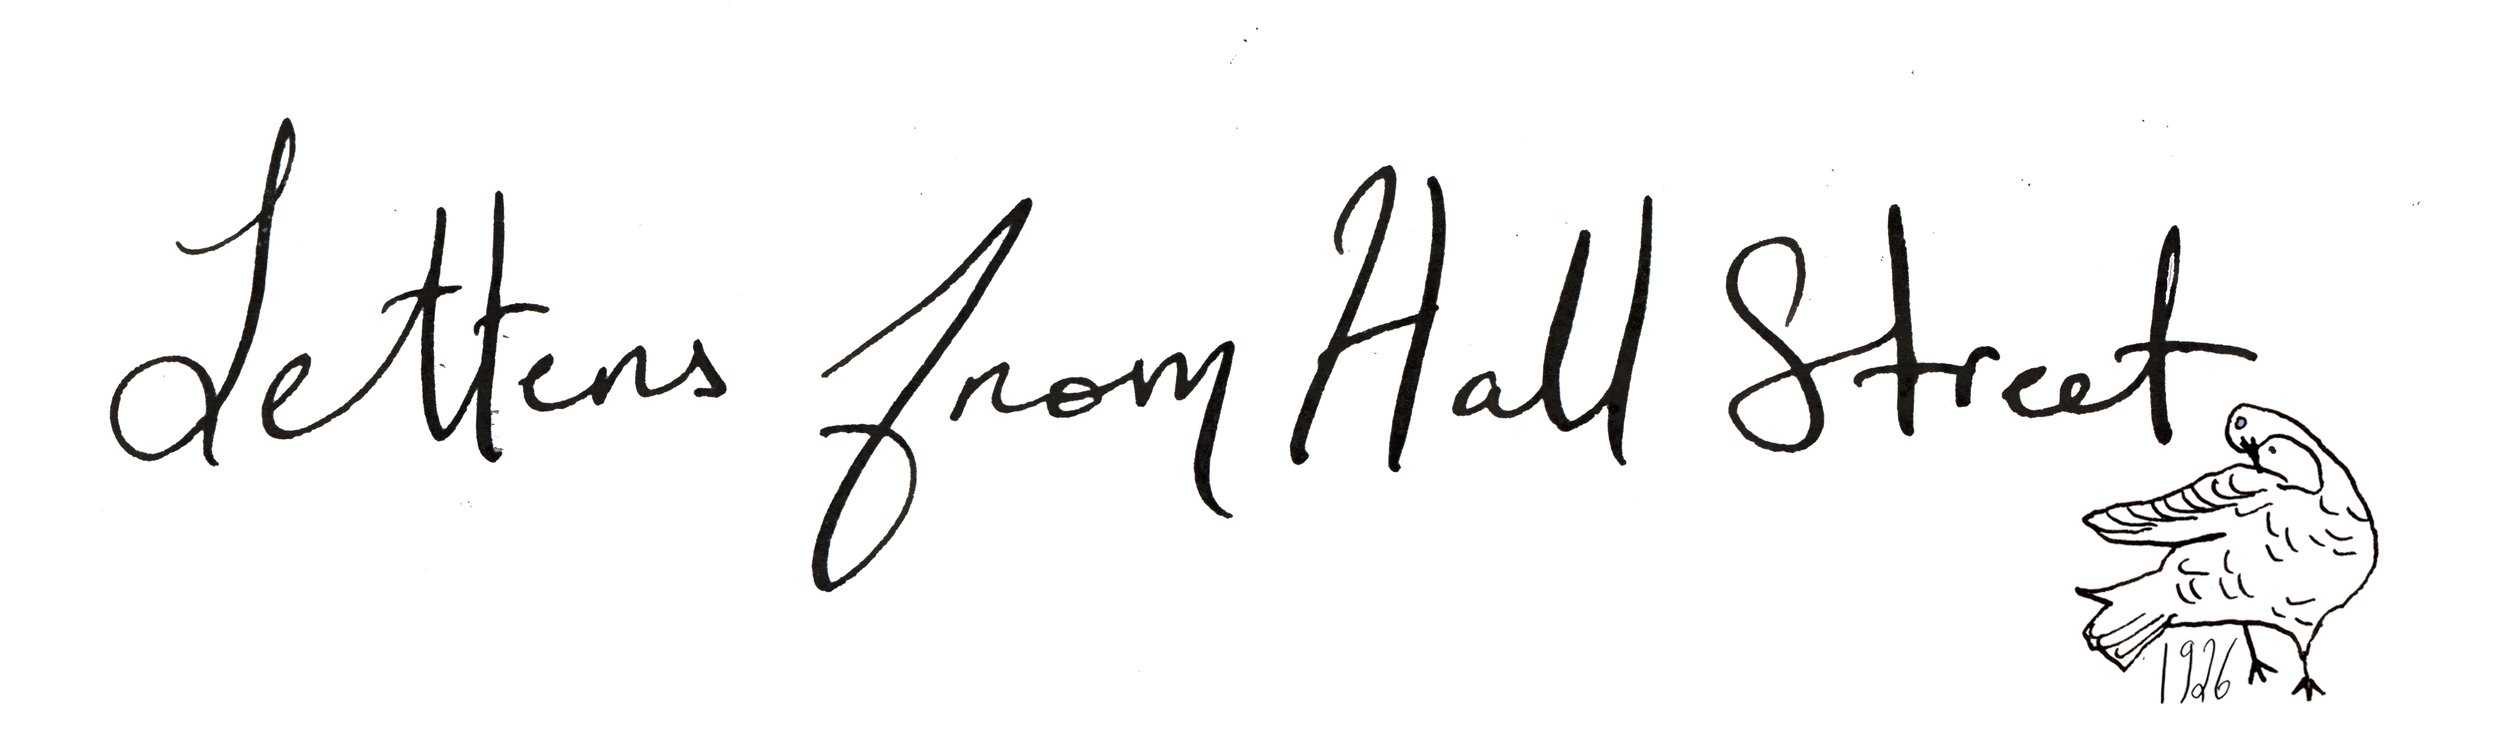 Letters from Hall Street
1926